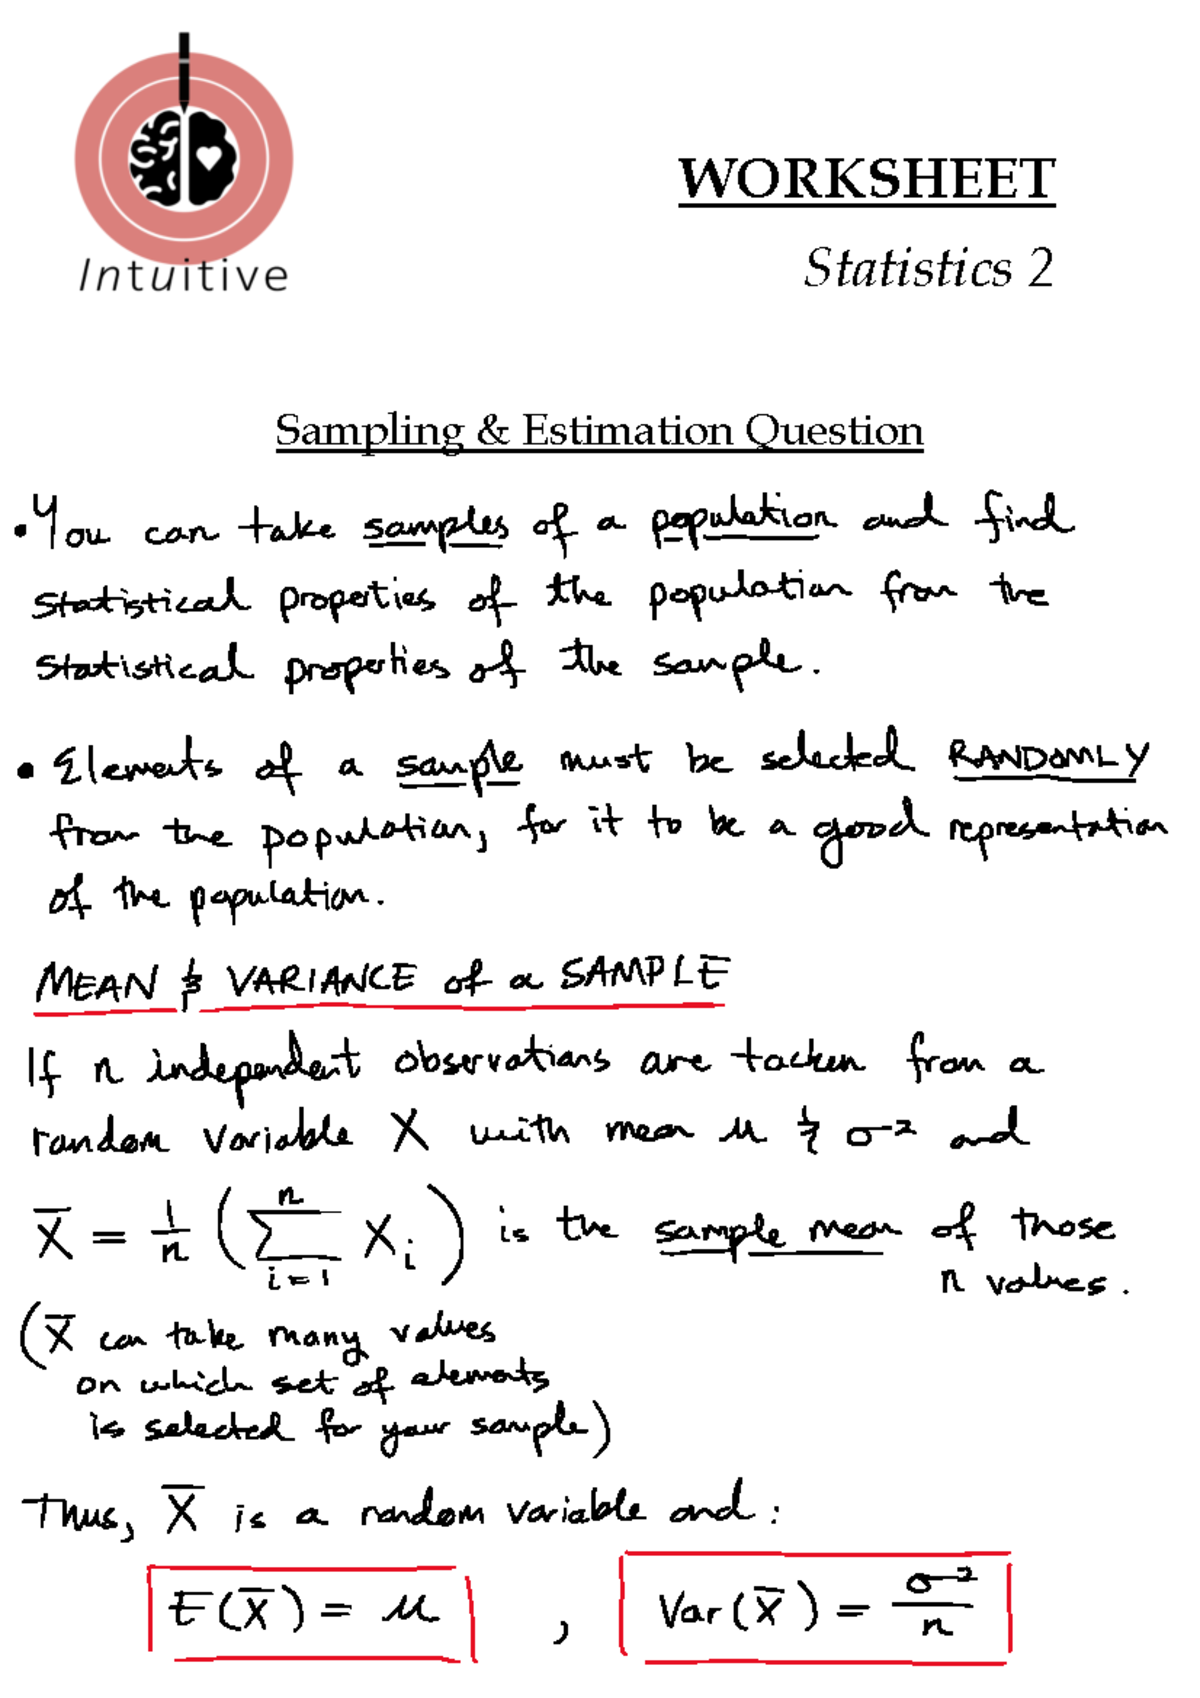 Intuitive
WORKSHEET
Statistics 2
Sampling & Estimation Question
• You can take samples of a population and find
statistical properties of the population from the
statistical properties of the sample.
• Elements of a sample must be selected RANDOMLY
from the population, for it to be a good representation
of the population.
MEAN & VARIANCE of a SAMPLE
If n independent observations are tacken from a
random variable X with mean μ & σ² and
X̄ = 1/n (∑ᵢ₌₁ⁿ Xᵢ) is the sample mean of those
n values.
(X̄ can take many values
on which set of elements
is selected for your sample)
Thus, X̄ is a random variable and:
E(X̄) = μ , Var(X̄) = σ²/n